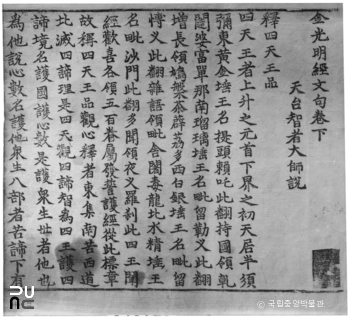 金光明經文句卷下
天台智者大師說
釋四天王品
四天王者上升之元首下界之初天居半須
彌東黃金埵王名提頭賴吒此翻持國領乾
闥婆富單那南瑠璃埵王名毗留勤叉此翻
增長領鳩槃茶薜荔多西白銀埵王名毗留
博叉此翻雜語領毗舍闍毒龍北水精埵王
名毗沙門此翻多聞領夜叉羅剎此四王聞
經歡喜各領五百眷屬發誓護經從此標章
故稱四天王品觀心釋者東集南苦西道
北滅四諦理是四天觀四諦智為四王護四
諦境名護國護心數是護衆生世者他也
為他說心數名護他衆生八部者若諦下有
© 국립중앙박물관